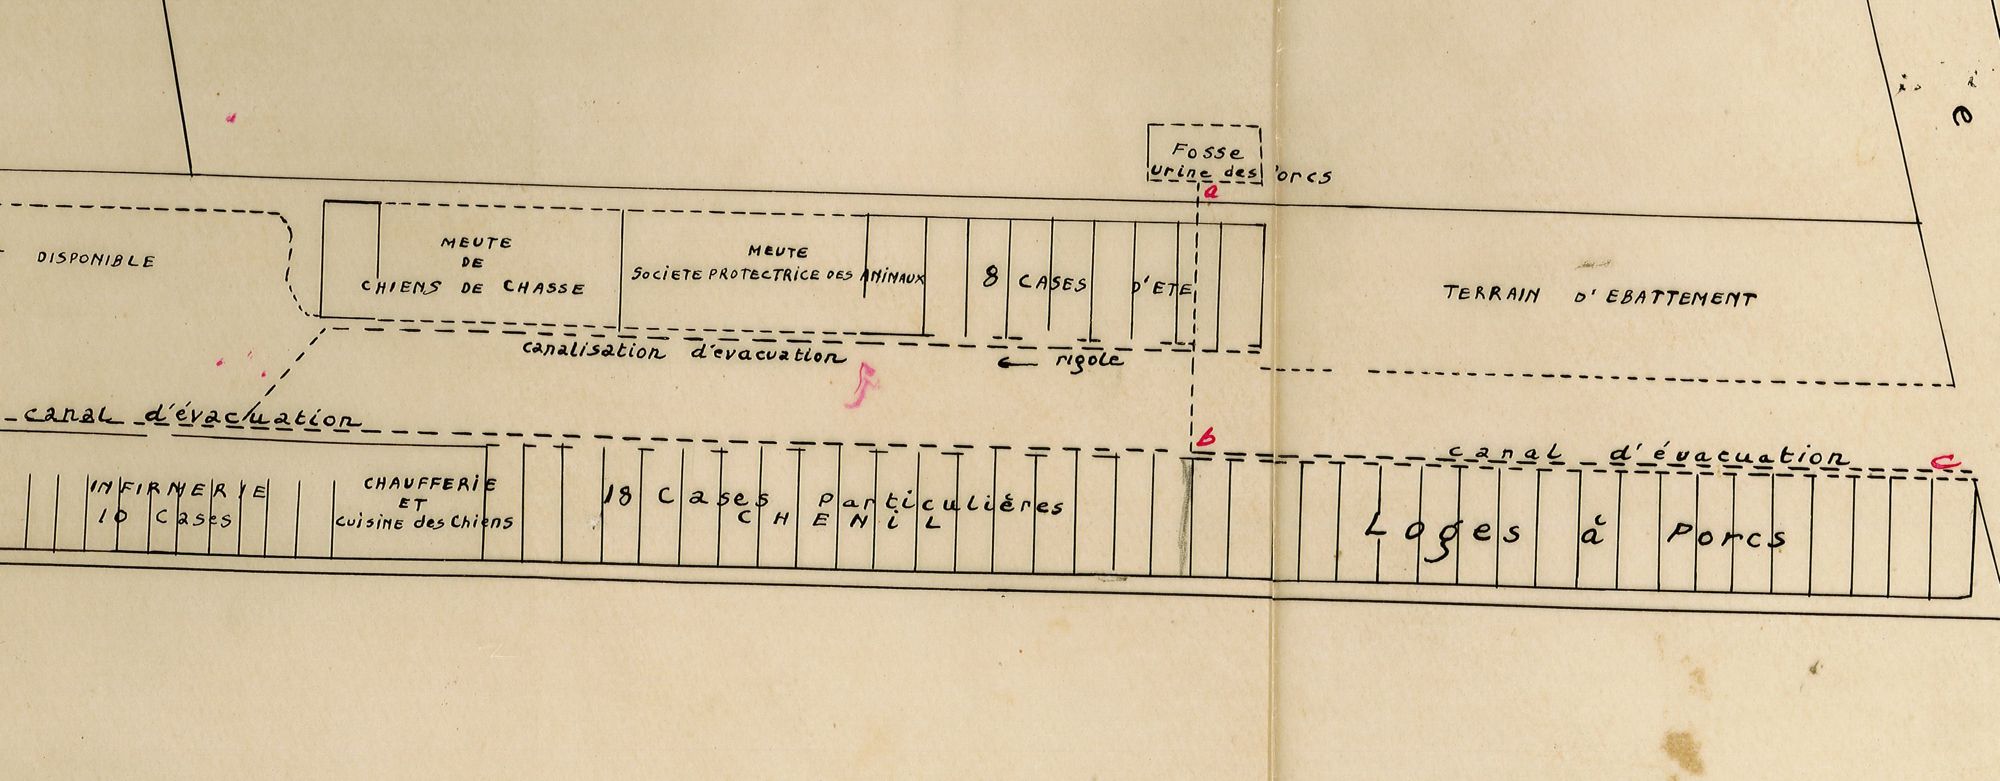 e
Fosse
urine des Porcs
a
DISPONIBLE
MEUTE
DE
CHIENS DE CHASSE
MEUTE
SOCIETE PROTECTRICE DES ANIMAUX
8 CASES D'ETE
TERRAIN D'EBATTEMENT
canalisation d'évacuation
← rigole
canal d'évacuation
b
canal d'évacuation
c
INFIRMERIE
10 Cases
CHAUFFERIE
ET
Cuisine des Chiens
18 Cases Particulières
CHENIL
Loges à Porcs